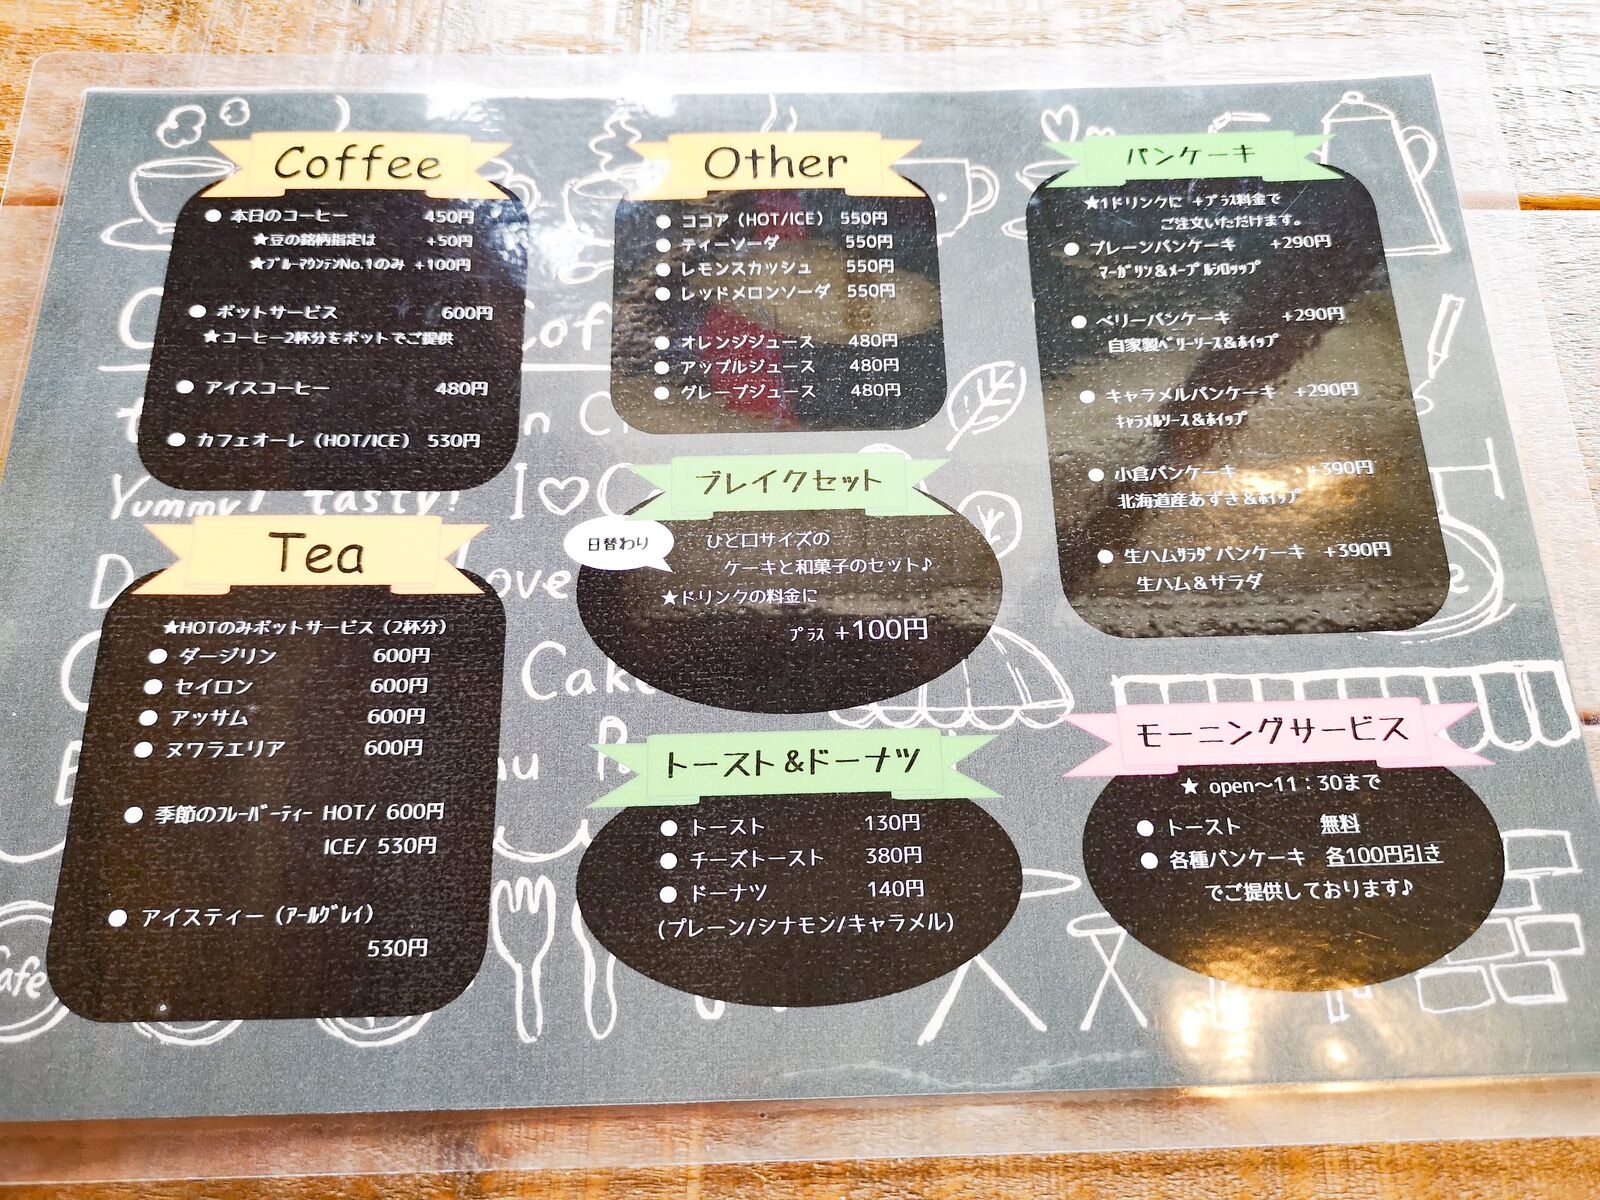 Coffee
● 本日のコーヒー 450円
★豆の銘柄指定は +50円
★ブルーマウンテンNo.1のみ +100円
● ポットサービス 600円
★コーヒー2杯分をポットでご提供
● アイスコーヒー 480円
● カフェオーレ（HOT/ICE） 530円
Tea
★HOTのみポットサービス（2杯分）
● ダージリン 600円
● セイロン 600円
● アッサム 600円
● ヌワラエリア 600円
● 季節のフレーバーティー HOT/ 600円
ICE/ 530円
● アイスティー（アールグレイ）
530円
Other
● ココア（HOT/ICE） 550円
● ティーソーダ 550円
● レモンスカッシュ 550円
● レッドメロンソーダ 550円
● オレンジジュース 480円
● アップルジュース 480円
● グレープジュース 480円
ブレイクセット
日替わり
ひと口サイズの
ケーキと和菓子のセット♪
★ドリンクの料金に
プラス +100円
トースト＆ドーナツ
● トースト 130円
● チーズトースト 380円
● ドーナツ 140円
(プレーン/シナモン/キャラメル)
パンケーキ
★1ドリンクに +プラス料金で
ご注文いただけます。
● プレーンパンケーキ +290円
マーガリン＆メープルシロップ
● ベリーパンケーキ +290円
自家製ベリーソース＆ホイップ
● キャラメルパンケーキ +290円
キャラメルソース＆ホイップ
● 小倉パンケーキ +390円
北海道産あずき＆ホイップ
● 生ハムサラダパンケーキ +390円
生ハム＆サラダ
モーニングサービス
★ open～11：30まで
● トースト 無料
● 各種パンケーキ 各100円引き
でご提供しております♪
Yummy! tasty! I♡
Cafe